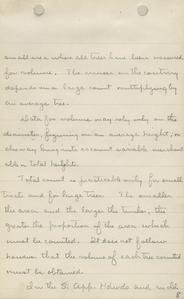 small area where all trees have been measured
for volume. The cruiser on the contrary
depends on a large count multiplying by
an average tree.
Data for volume may rely only on the
diameter, figuring on an average height; or
else may bring into account variable merchant-
able or total heights.
Total count is practicable only for small
tracts and for large trees. The smaller
the area and the larger the timber, the
greater the proportion of the area which
must be counted. It does not follow
however that the volume of each tree counted
must be obtained.
In the S. App. Hdwds and in old